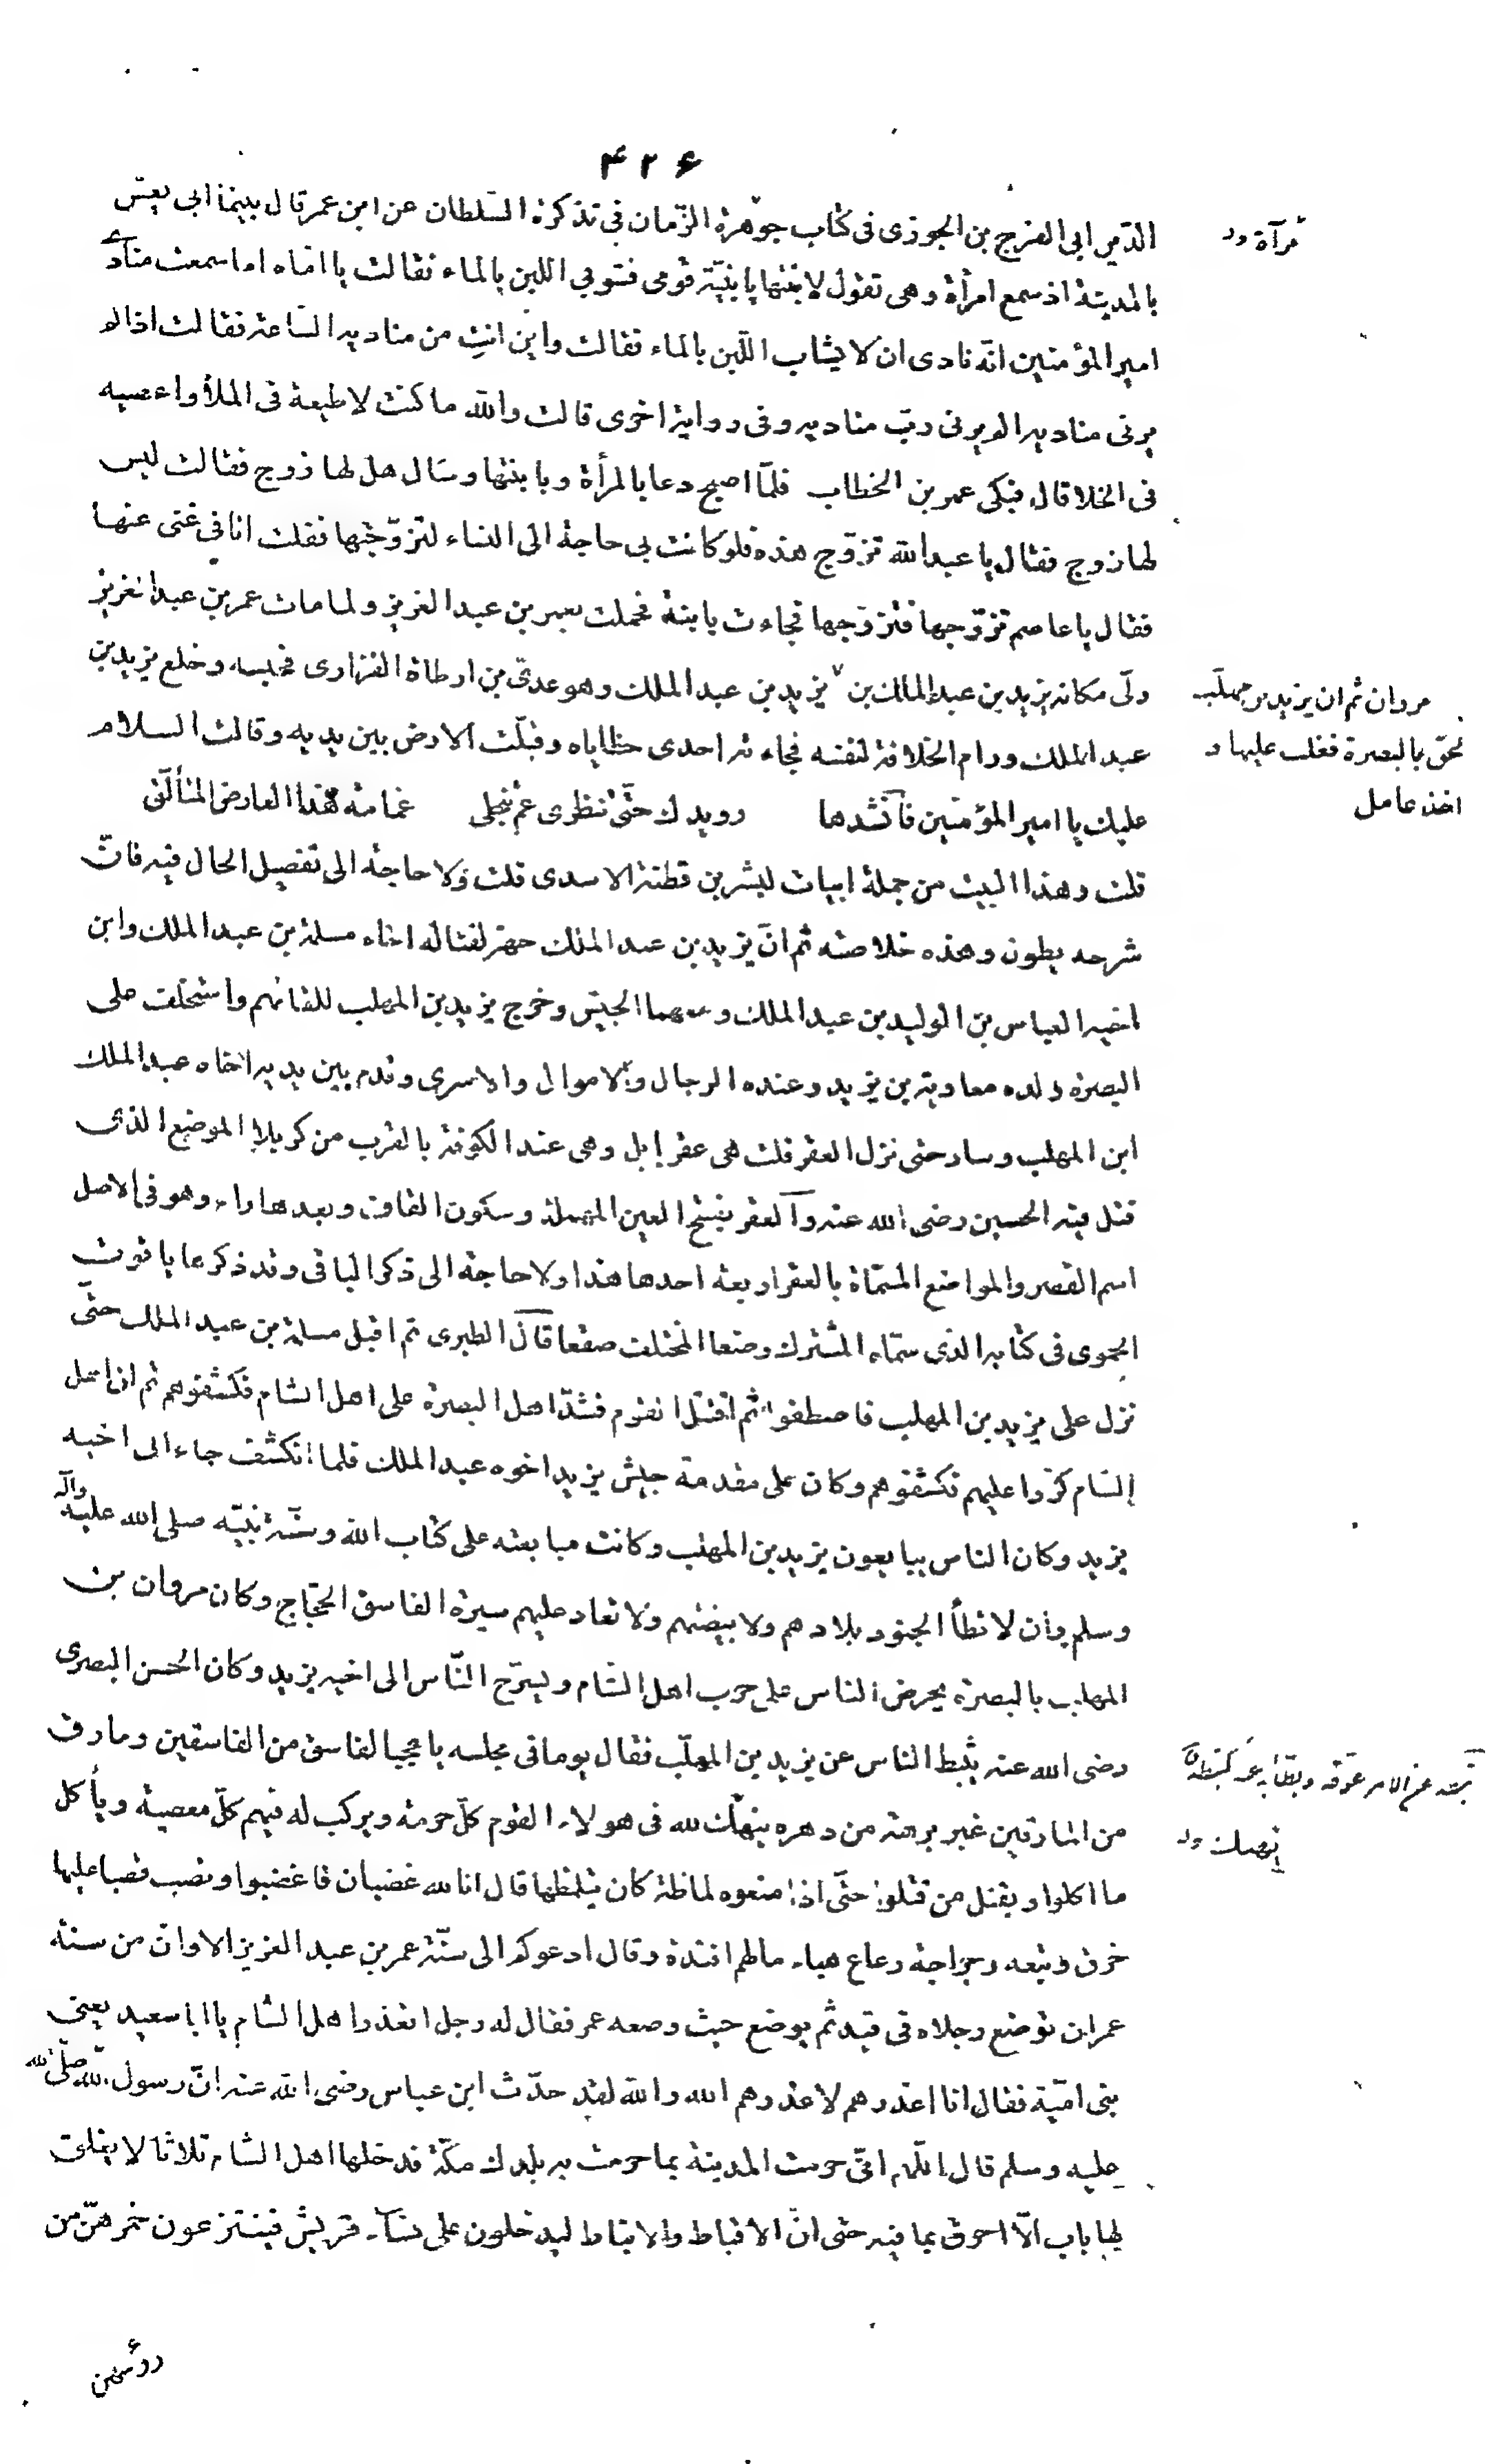 ۴۲۶
الدين ابى الفرج بن الجوزى فى كتاب جوهرة الزّمان فى تذكرة السّلطان عن ابن عمر قال بينما ابى يعسّ
مرآة
بالمدينة اذ سمع امرأة وهى تقول لابنتها يا بنيّة قومى فشوبى اللبن بالماء فقالت يا امّاه اما سمعت منادى
امير المؤمنين انّه نادى ان لا يشاب اللّبن بالماء فقالت واين انتِ من مناديه السّاعة فقالت اذا لم
يرنى مناديه الم يرنى ربّ مناديه وفى رواية اخرى قالت والله ما كنت لاطيعه فى الملأ واعصيه
فى الخلا قال فبكى عمر بن الخطاب فلمّا اصبح دعا بالمرأة وبابنتها وسال هل لها زوج فقالت ليس
لها زوج فقال يا عبد الله تزوّج هذه فلو كانت بى حاجة الى النساء لتزوّجتها فقلت انا فى غنى عنها
فقال يا عاصم تزوّجها فتزوّجها فجاءت بابنة فحملت بعمر بن عبد العزيز ولما مات عمر بن عبد العزيز
ولّى مكانه يزيد بن عبد الملك بن يزيد بن عبد الملك وهو عدىّ بن ارطاة الفزارى فحبسه وخلع يزيد بن
مروان ثم ان يزيد بن مهلّب
لحق بالبصرة فغلب عليها و
اخذ عامل
عبد الملك ورام الخلافة لنفسه فجاءته احدى حظاياه وقبلّت الارض بين يديه وقالت السلام
عليك يا امير المؤمنين فانشدها رويدك حتّى تنظرى عمّ ينجلى غمامة هذا العارض المتألّق
قلت وهذا البيت من جملة ابيات لبشر بن قطنة الاسدى قلت ولا حاجة الى تفصيل الحال فيه فانّ
شرحه يطول وهذه خلاصته ثم انّ يزيد بن عبد الملك جهز لقتاله اخاه مسلمة بن عبد الملك وابن
اخيه العباس بن الوليد بن عبد الملك ومعهما الجيش وخرج يزيد بن المهلب للقائهم واستخلف على
البصرة ولده معاوية بن يزيد وعنده الرجال والاموال والاسرى وقدم بين يديه اخاه عبد الملك
ابن المهلب وسار حتى نزل العقر قلت هى عقر بابل وهى عند الكوفة بالقرب من كربلا الموضع الذى
قتل فيه الحسين رضى الله عنه والعقر بفتح العين المهملة وسكون القاف وبعدها راء وهو فى الاصل
اسم القصر والمواضع المسمّاة بالعقر اربعة احدها هذا ولا حاجة الى ذكر الباقى وقد ذكرها ياقوت
الحموى فى كتابه الذى سمّاه المشترك وضعا المختلف صقعا قال الطبرى ثم اقبل مسلمة بن عبد الملك حتّى
نزل على يزيد بن المهلب فاصطفوا ثم اقتتل القوم فشدّ اهل البصرة على اهل الشام فكشفوهم ثم ان اهل
الشام كرّوا عليهم فكشفوهم وكان على مقدمة جيش يزيد اخوه عبد الملك فلما انكشف جاء الى اخيه
يزيد وكان الناس يبايعون يزيد بن المهلب وكانت مبايعته على كتاب الله وسنّة نبيّه صلى الله عليه وآله
وسلم وان لا تطأ الجنود بلادهم ولا بيضتهم ولا تعاد عليهم سيرة الفاسق الحجّاج وكان مروان بن
المهلب بالبصرة يحرض الناس على حرب اهل الشام ويسرّح النّاس الى اخيه يزيد وكان الحسن البصرى
رضى الله عنه يثبط الناس عن يزيد بن المهلّب فقال يوما فى مجلسه يا عجبا لفاسق من الفاسقين ومارق
ثبّته عن الامر عوّقه وبطّأ به
من المارقين غبر برهة من دهره ينهتك لله فى هولاء القوم كلّ حرمة ويركب له فيهم كلّ معصية ويأكل
ما اكلوا ويقتل من قتلوا حتّى اذا منعوه لماظة كان يتلمظها قال انا لله غضبان فاغضبوا ونصب قصبا عليها
خرق وتبعه رجراجة رعاع هباء ما لهم افئدة وقال ادعوكم الى سنّة عمر بن عبد العزيز الا وان من سنة
عمر ان توضع رجلاه فى قيد ثم يوضع حيث وضعه عمر فقال له رجل اتعذر اهل الشام يا ابا سعيد يعنى
بنى اميّة فقال انا اعذرهم لا عذرهم الله والله لقد حدّث ابن عباس رضى الله عنه انّ رسول الله صلّى الله
عليه وسلم قال اللّهم انّى حرمت المدينة بما حرمت به بلدك مكّة فدخلها اهل الشام ثلاثا لا يغلق
لها باب الّا احرق بما فيه حتى انّ الاقباط والانباط ليدخلون على نساء قريش فينتزعون خمرهنّ من
رؤسهن